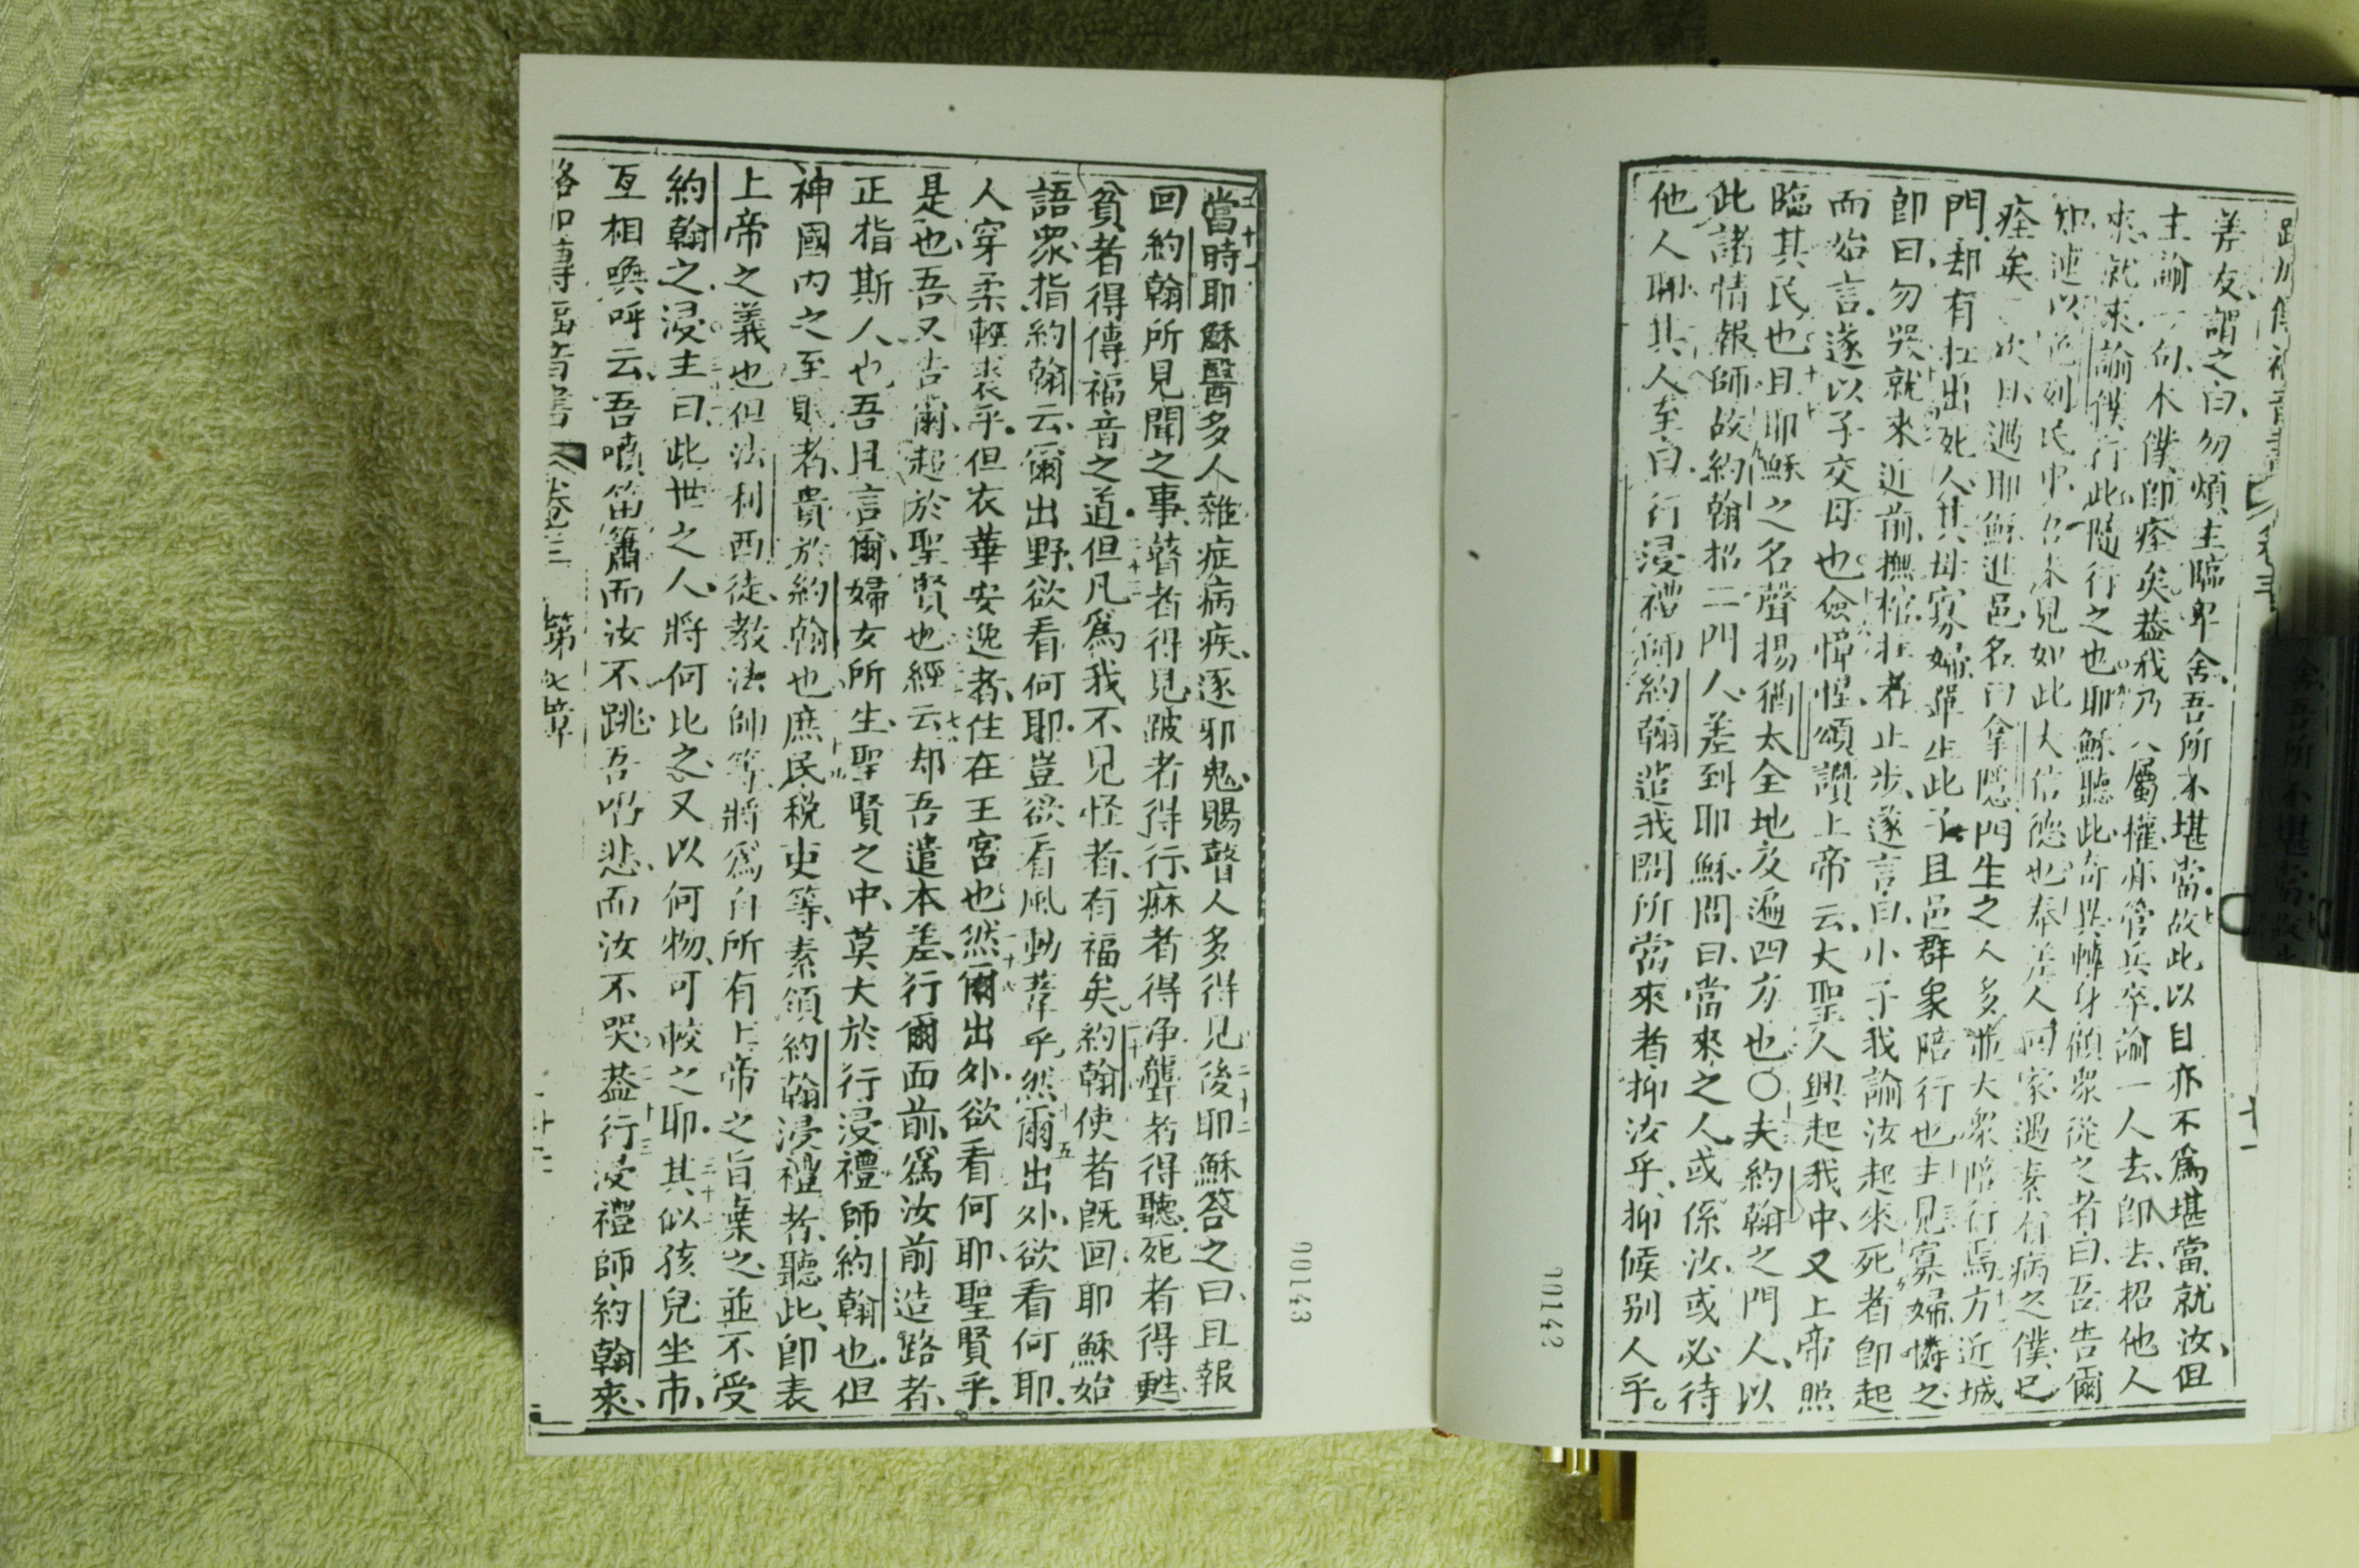 差友謂之曰勿煩主臨卑舍吾所不堪當故此以自亦不爲堪當就汝但
主諭一句本僕即痊矣葢我乃人屬權亦管兵卒諭一人去即去招他人
來就來諭僕行此隨行之也耶穌聽此奇異轉身顧衆從之者曰吾告爾
知連以色列民中吾未見如此大信德也奉差人回家遇素有病之僕已
痊矣次日遇耶穌進邑名曰拿隱門生之人多並大衆陪行焉方近城
門却有扛出死人其母寡婦單生此子且邑群衆陪行也主見寡婦憐之
即曰勿哭就來近前撫棺扛者止步遂言曰小子我諭汝起來死者即起
而始言遂以子交母也僉憚惶頌讚上帝云大聖人興起我中又上帝照
臨其民也且耶穌之名聲揚猶太全地及遍四方也○夫約翰之門人以
此諸情報師故約翰招二門人差到耶穌問曰當來之人或係汝或必待
他人耶其人至曰行浸禮師約翰遣我問所當來者抑汝乎抑候别人乎
00142
當時耶穌醫多人雜症病疾逐邪鬼賜瞽人多得見後耶穌答之曰且報
回約翰所見聞之事瞽者得見跛者得行痳者得净聾者得聽死者得甦
貧者得傳福音之道但凡爲我不見怪者有福矣約翰使者既回耶穌始
語衆指約翰云爾出野欲看何耶豈欲看風動葦乎然爾出外欲看何耶
人穿柔輕裘乎但衣華安逸者住在王宮也然爾出外欲看何耶聖賢乎
是也吾又告爾超於聖賢也經云却吾遣本差行爾面前爲汝前造路者
正指斯人也吾且言爾婦女所生聖賢之中莫大於行浸禮師約翰也但
神國内之至則者貴於約翰也庶民税吏等素領約翰浸禮者聽此即表
上帝之義也但法利西徒教法師等將爲自所有上帝之旨棄之並不受
約翰之浸主曰此世之人將何比之又以何物可較之耶其似孩兒坐市
互相喚呼云吾噴笛簫而汝不跳吾唱悲而汝不哭葢行浸禮師約翰來
路加傳福音書 卷三 第七章
00143